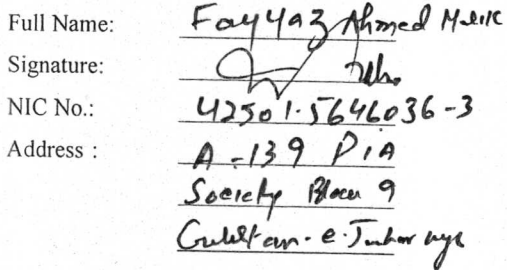 Full Name: Fayyaz Ahmed Malik
Signature:
NIC No.: 42501-5646036-3
Address : A-139 PIA
Society Block 9
Gulistan-e-Johar